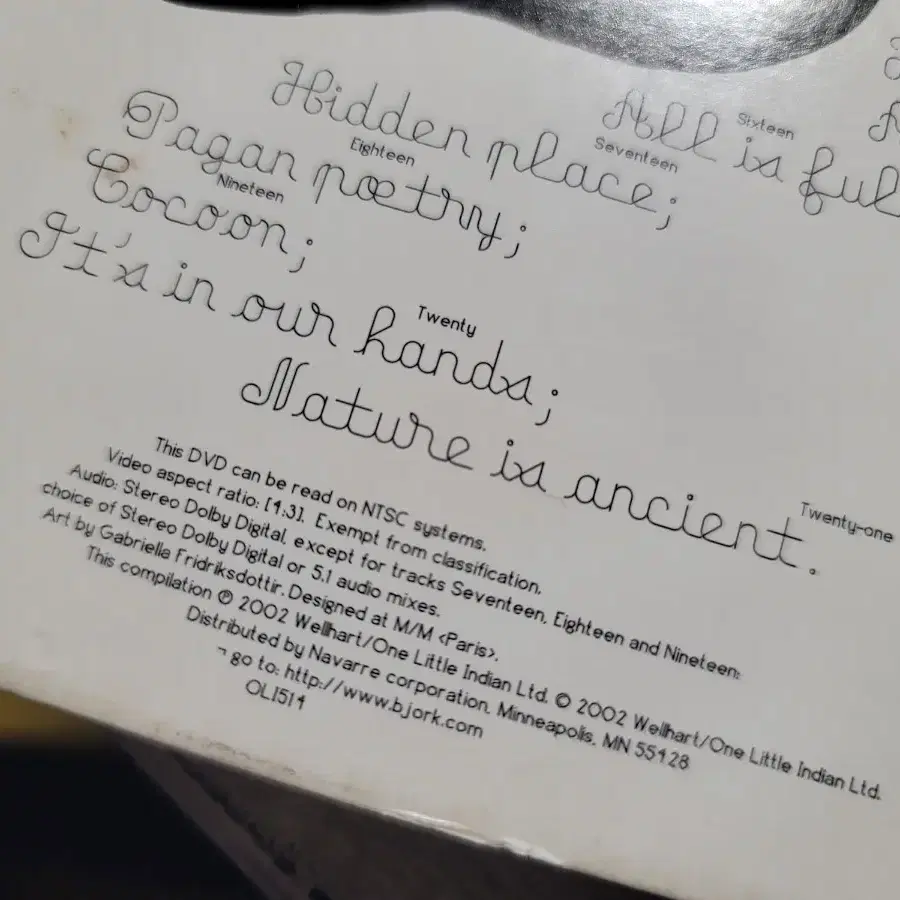 Sixteen
All is ful
Seventeen
Hidden place;
Eighteen
Pagan poetry;
Nineteen
Cocoon;
Twenty
It's in our hands;
Twenty-one
Nature is ancient.
This DVD can be read on NTSC systems.
Video aspect ratio: [4:3]. Exempt from classification.
Audio: Stereo Dolby Digital, except for tracks Seventeen, Eighteen and Nineteen:
choice of Stereo Dolby Digital or 5.1 audio mixes.
Art by Gabriella Fridriksdottir. Designed at M/M <Paris>.
This compilation ℗ 2002 Wellhart/One Little Indian Ltd. © 2002 Wellhart/One Little Indian Ltd.
Distributed by Navarre corporation, Minneapolis, MN 55428
¬ go to: http://www.bjork.com
OLI514